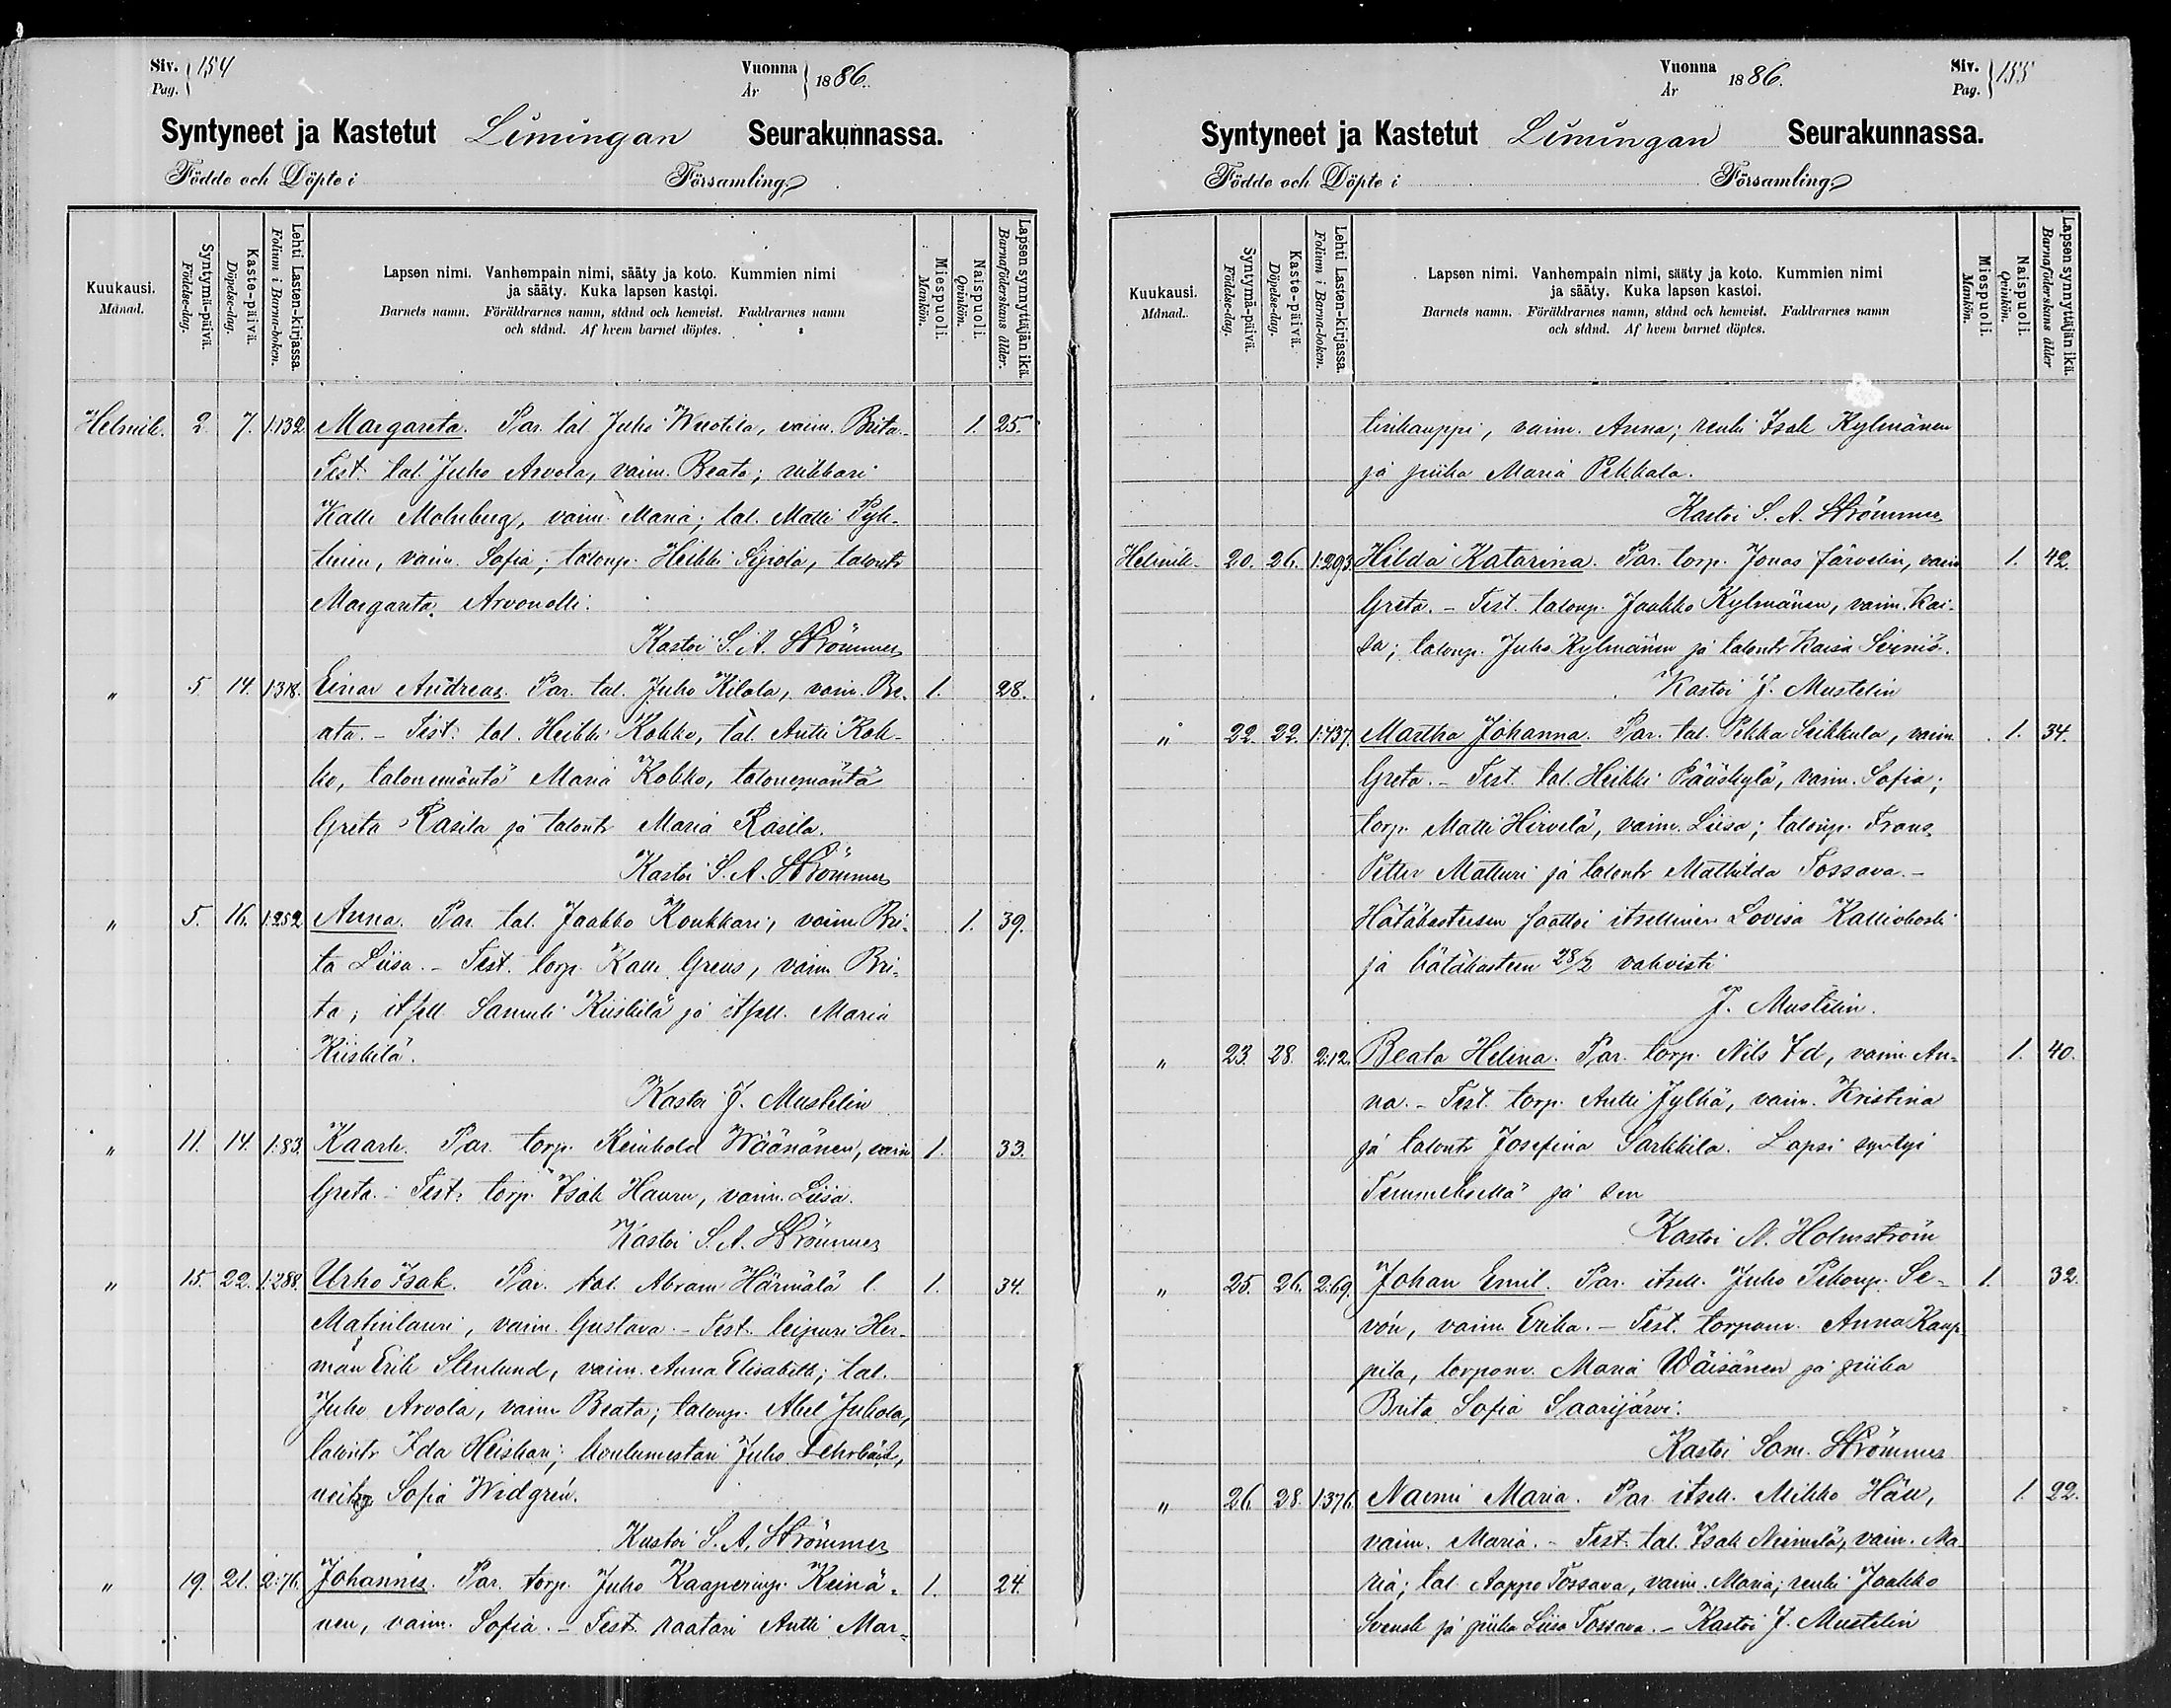 Siv. 154
Pag.
Vuonna 1886.
År
Syntyneet ja Kastetut Limingan Seurakunnassa.
Födde och Döpte i Församling.
Kuukausi.
Månad.
Syntymä-päivä.
Födelse-dag.
Kaste-päivä.
Döpelse-dag.
Lehti Lasten-kirjassa.
Folium i Barna-boken.
Lapsen nimi. Vanhempain nimi, sääty ja koto. Kummien nimi
ja sääty. Kuka lapsen kastoi.
Barnets namn. Föräldrarnes namn, stånd och hemvist. Faddrarnes namn
och stånd. Af hvem barnet döptes.
Miespuoli.
Mankön.
Naispuoli.
Qvinkön.
Lapsen synnyttäjän ikä.
Barnaföderskans ålder.
Helmik. 2. 7. 1:132 Margareta. Par. tal. Juho Wuotila, vaim. Brita. 1. 25.
Test. tal. Juho Arvola, vaim. Beata; nikkari
Kalle Molnberg, vaim. Maria; tal. Matti Pyh-
tinen, vaim. Sofia; talonp. Heikki Sipola, talontr
Margareta Arvonelli.
Kastoi S. A. Strömmer
" 5. 14. 1:318. Einar Andreas. Par. tal. Juho Kilola, vaim. Be- 1. 28.
ata. - Test. tal. Heikki Kokko, tal. Antti Kok-
ko, talonemäntä Maria Kokko, talonemäntä
Greta Rasila ja talontr Maria Rasila.
Kastoi S. A. Strömmer
" 5. 16. 1:252 Anna. Par. tal. Jaakko Koukkari, vaim. Bri- 1. 39.
ta Liisa. - Test. torp. Kalle Greus, vaim Bri-
ta; itsell Samuli Kiiskilä ja itsell. Maria
Kiiskilä.
Kastoi J. Mustelin
" 11. 14. 1:83. Kaarle. Par. torp. Reinhold Wäänänen, vaim 1. 33.
Greta. - Test. torp. Isak Hauru, vaim. Liisa.
Kastoi S. A. Strömmer
" 15. 22. 1:288. Urho Isak. Par. tal. Abram Härmälä l. 1. 34.
Matinlauri, vaim. Gustava. - Test. leipuri Her-
man Erik Stenlund, vaim. Anna Elisabeth; tal.
Juho Arvola, vaim Beata; talonp. Abel Juhola,
talontr Ida Heiskari; koulumestari Juho Lehrbäck,
neitsy Sofia Widgrén.
Kastoi S. A. Strömmer
" 19. 21. 2:76. Johannes. Par. torp. Juho Kaaperinp. Keinä- 1. 24.
nen, vaim. Sofia. - Test. raatari Antti Mar-
Vuonna 1886.
År
Siv. 155
Pag.
Syntyneet ja Kastetut Limingan Seurakunnassa.
Födde och Döpte i Församling.
Kuukausi.
Månad.
Syntymä-päivä.
Födelse-dag.
Kaste-päivä.
Döpelse-dag.
Lehti Lasten-kirjassa.
Folium i Barna-boken.
Lapsen nimi. Vanhempain nimi, sääty ja koto. Kummien nimi
ja sääty. Kuka lapsen kastoi.
Barnets namn. Föräldrarnes namn, stånd och hemvist. Faddrarnes namn
och stånd. Af hvem barnet döptes.
Miespuoli.
Mankön.
Naispuoli.
Qvinkön.
Lapsen synnyttäjän ikä.
Barnaföderskans ålder
tinkauppi, vaim. Anna; renki Isak Kylmänen
ja piika Maria Pekkala.
Kastoi S. A. Strömmer
Helmik. 20. 26. 1:293. Hilda Katarina. Par. torp. Jonas Järvelin, vaim 1. 42.
Greta. - Test. talonp. Jaakko Kylmänen, vaim. Kai-
sa; talonp. Juho Kylmänen ja talontr Kaisa Siiniö.
Kastoi J. Mustelin
" 22. 22. 1:437. Martha Johanna. Par. tal. Pekka Seikkula, vaim. 1. 34.
Greta. - Test. tal. Heikki Pääskylä, vaim. Sofia;
torp. Matti Hirvelä, vaim. Liisa; talonp. Frans
Petter Matturi ja talontr Mathilda Tossava. -
Hätäkasteesen saattoi itsellinen Lovisa Kalliokoski
ja hätäkasteen 28/2 vahvisti
J. Mustelin.
" 23. 28. 2:12. Beata Helena. Par. torp. Nils Id, vaim. An- 1. 40.
na. - Test. torp. Antti Jylhä, vaim. Kristina
ja talontr Josefina Sarkkila. Lapsi syntyi
Temmeksellä ja sen
Kastoi N. Holmström
" 25. 26. 2:69. Johan Emil. Par. itsell. Juho Pekanp. Se- 1. 32.
vón, vaim. Erika. - Test. torpanv. Anna Kaup-
pila, torpanv. Maria Wäisänen ja piika
Brita Sofia Saarijärvi.
Kastoi Sam. Strömmer
" 26. 28. 1:376. Naemi Maria. Par. itsell. Mikko Häll, 1. 22.
vaim. Maria. - Test. tal. Isak Niemelä, vaim. Ma-
ria; tal. Aappo Tossava, vaim. Maria; renki Jaakko
Svensk ja piika Liisa Tossava. - Kastoi J. Mustelin